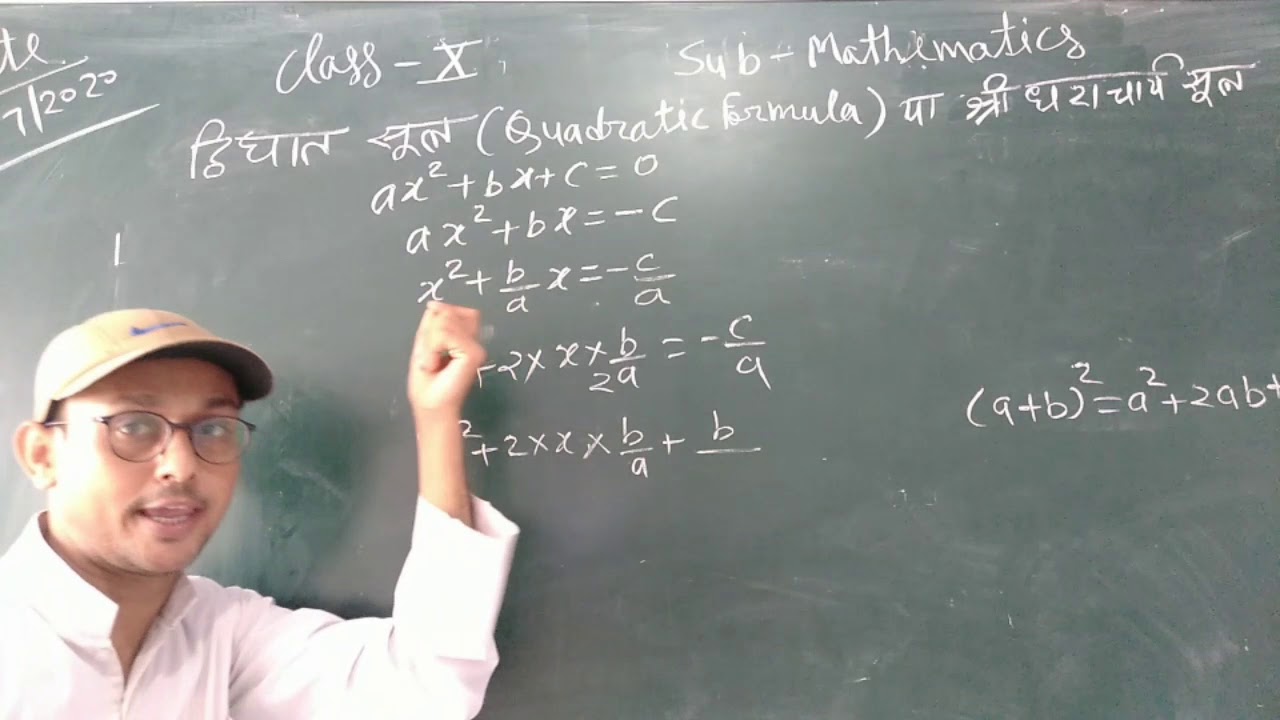 7/2020
Class - X
Sub - Mathematics
द्विघात सूत्र (Quadratic Formula) या श्री धराचार्य सूत्र
ax² + bx + c = 0
ax² + bx = -c
x² + b/a x = -c/a
+ 2 × x × b/2a = -c/a
² + 2 × x × b/a + b
(a+b)² = a² + 2ab +